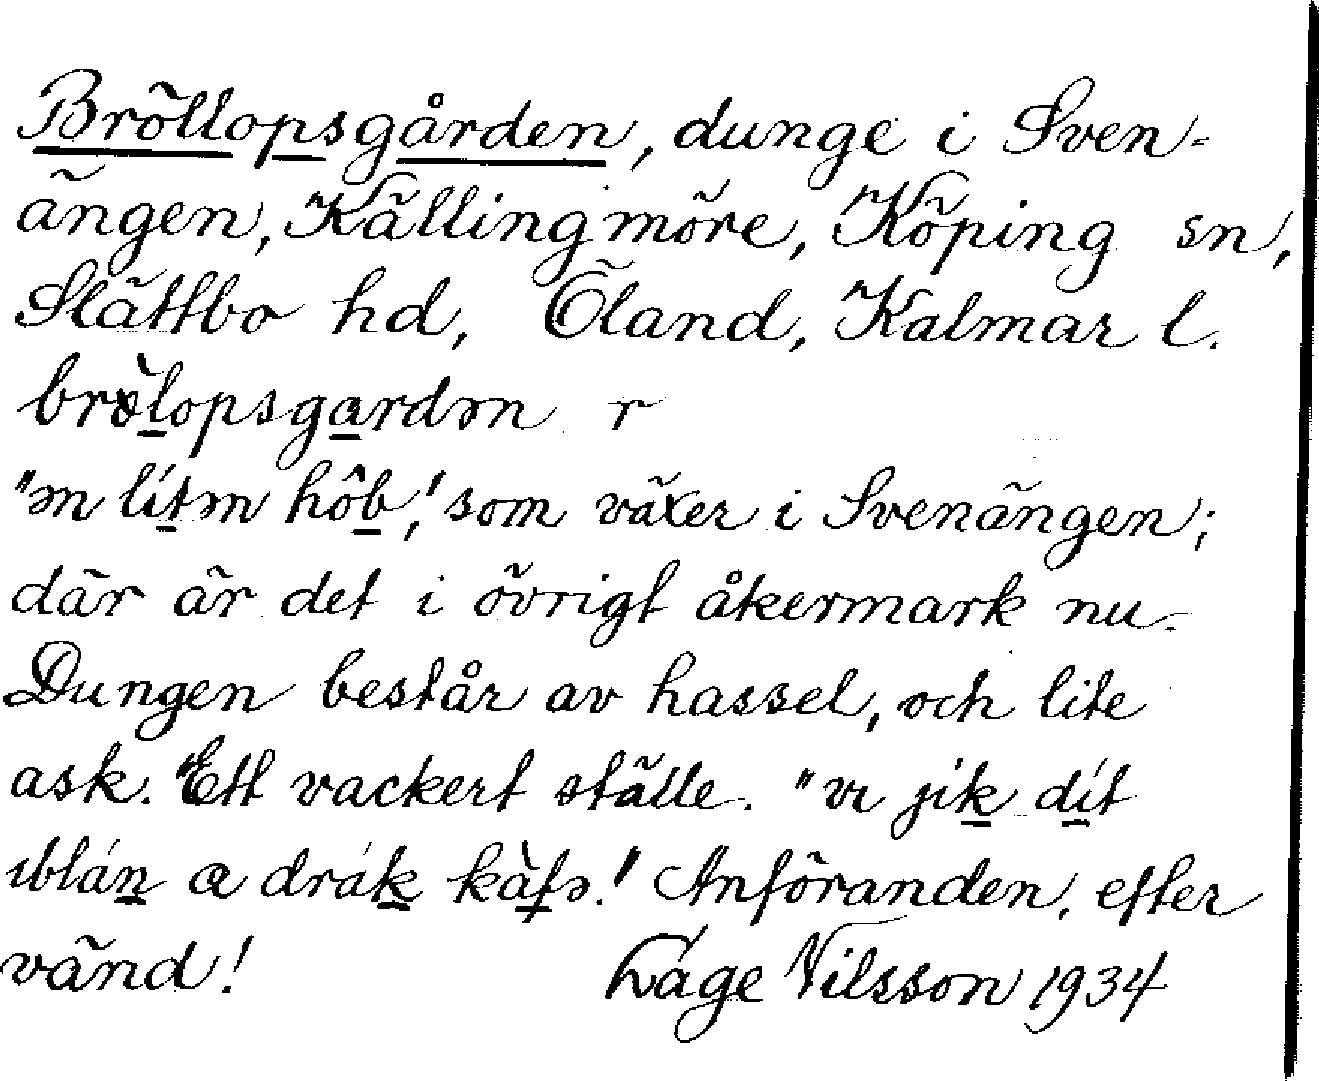 Bröllopsgården, dunge i Sven-
ängen, Källingmöre, Köping sn,
Slättbo hd, Öland, Kalmar l.
brölopsgardən r
"ən lítən hôb," som växer i Svenängen;
där är det i övrigt åkermark nu.
Dungen består av hassel, och lite
ask. Ett vackert ställe. "vɩ jik dít
ɩblán a drák kàfə." Anföranden, efter
vänd! Låge Nilsson 1934